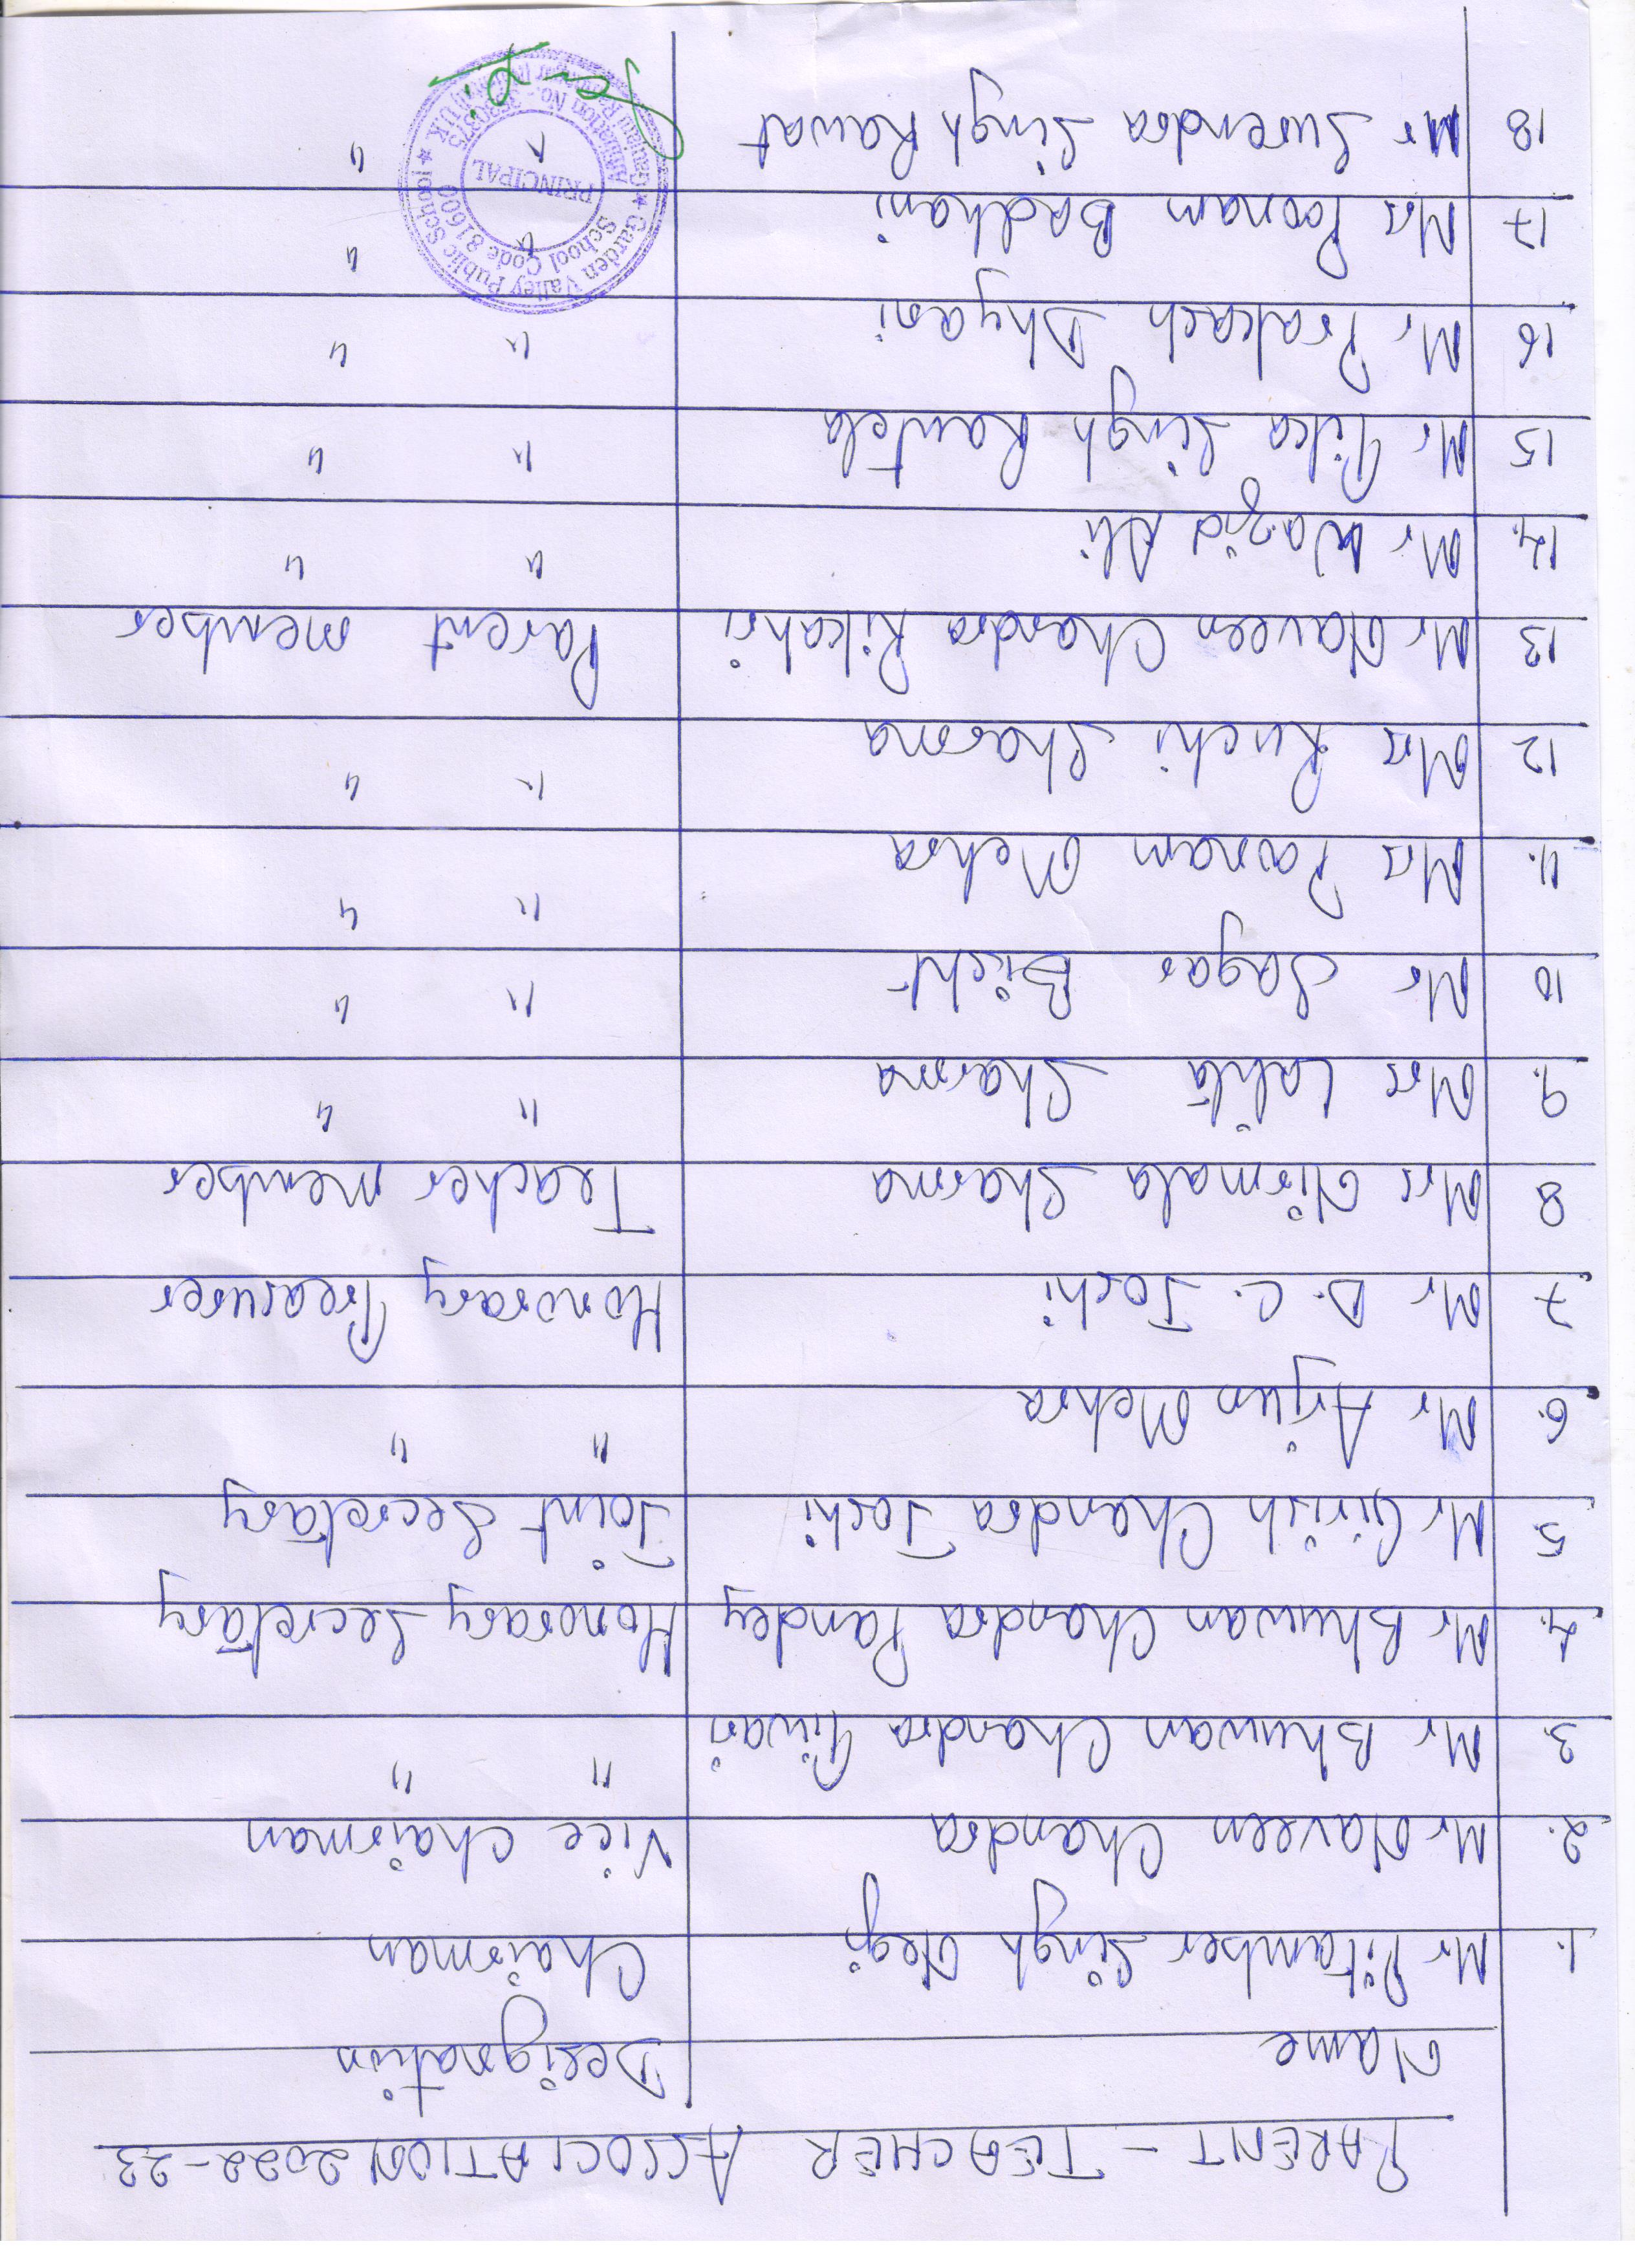 PARENT - TEACHER ASSOCIATION 2022-23
Name Designation
1. Mr Pitamber Singh Negi Chairman
2. Mr Naveen Chandra Vice Chairman
3. Mr Bhuwan Chandra Tiwari " "
4. Mr Bhuwan Chandra Pandey Honorary Secretary
5. Mr Girish Chandra Joshi Joint Secretary
6. Mr Arjun Mehra " "
7. Mr D. C. Joshi Honorary Treasurer
8 Mrs Nirmala Sharma Teacher member
9. Mrs Lalita Sharma " "
10 Mr Sagar Bisht " "
11. Mrs Poonam Mehra " "
12 Mrs Ruchi Sharma " "
13 Mr Naveen Chandra Rikahri Parent member
14. Mr Wazid Ali " "
15 Mr Tika Singh Rautela " "
16 Mr Prakash Dhyani " "
17 Mrs Poonam Badhani " "
18 Mr Surendra Singh Rawat " "
★ Garden Valley Public School ★
School Code 81600
PRINCIPAL
Affiliation No.- 3530575
Ramnagar
U.K.